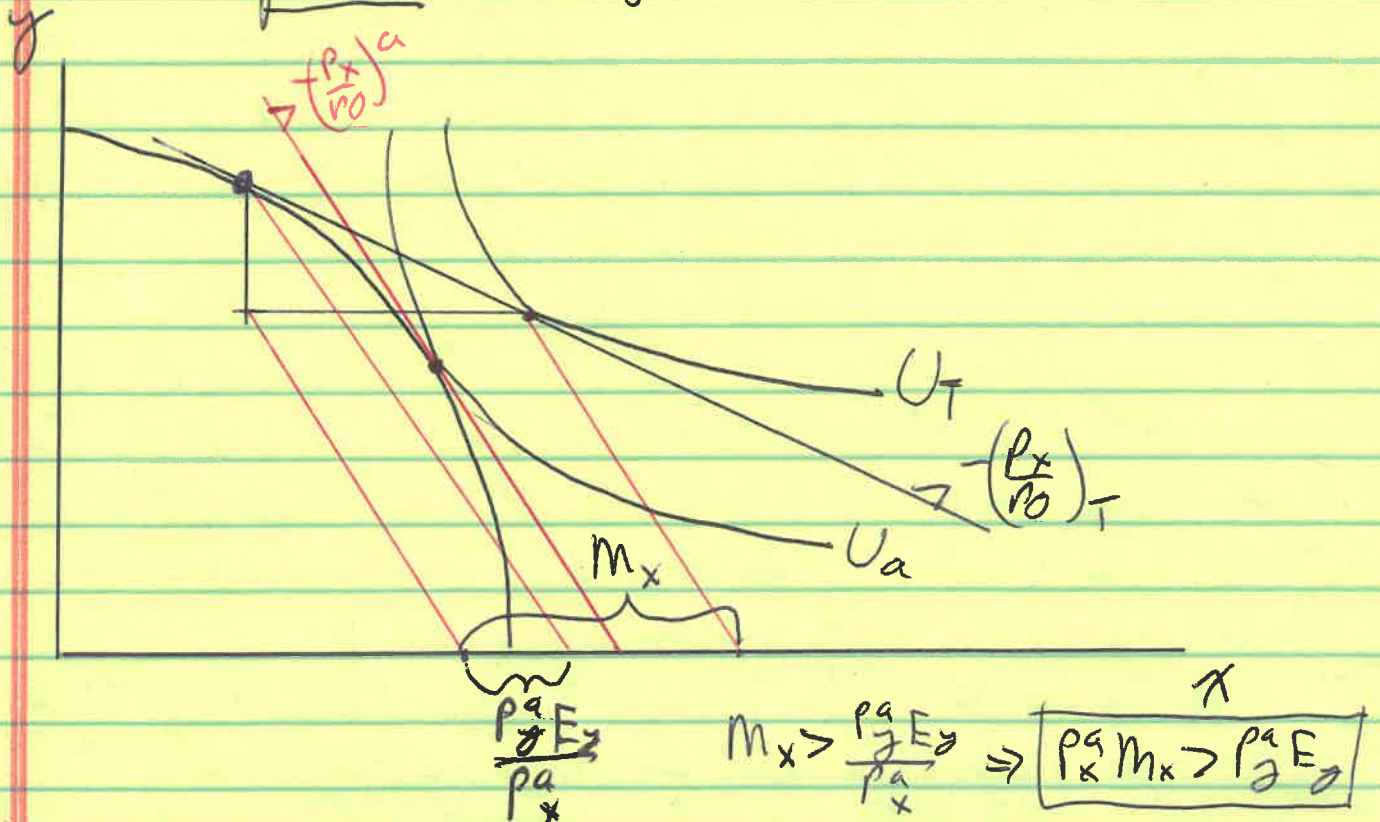 y
-(Px/ro)^a
U_T
-(Px/ro)_T
U_a
m_x
x
P_y^a E_y / P_x^a
m_x > P_y^a E_y / P_x^a ⇒ P_x^a m_x > P_y^a E_y